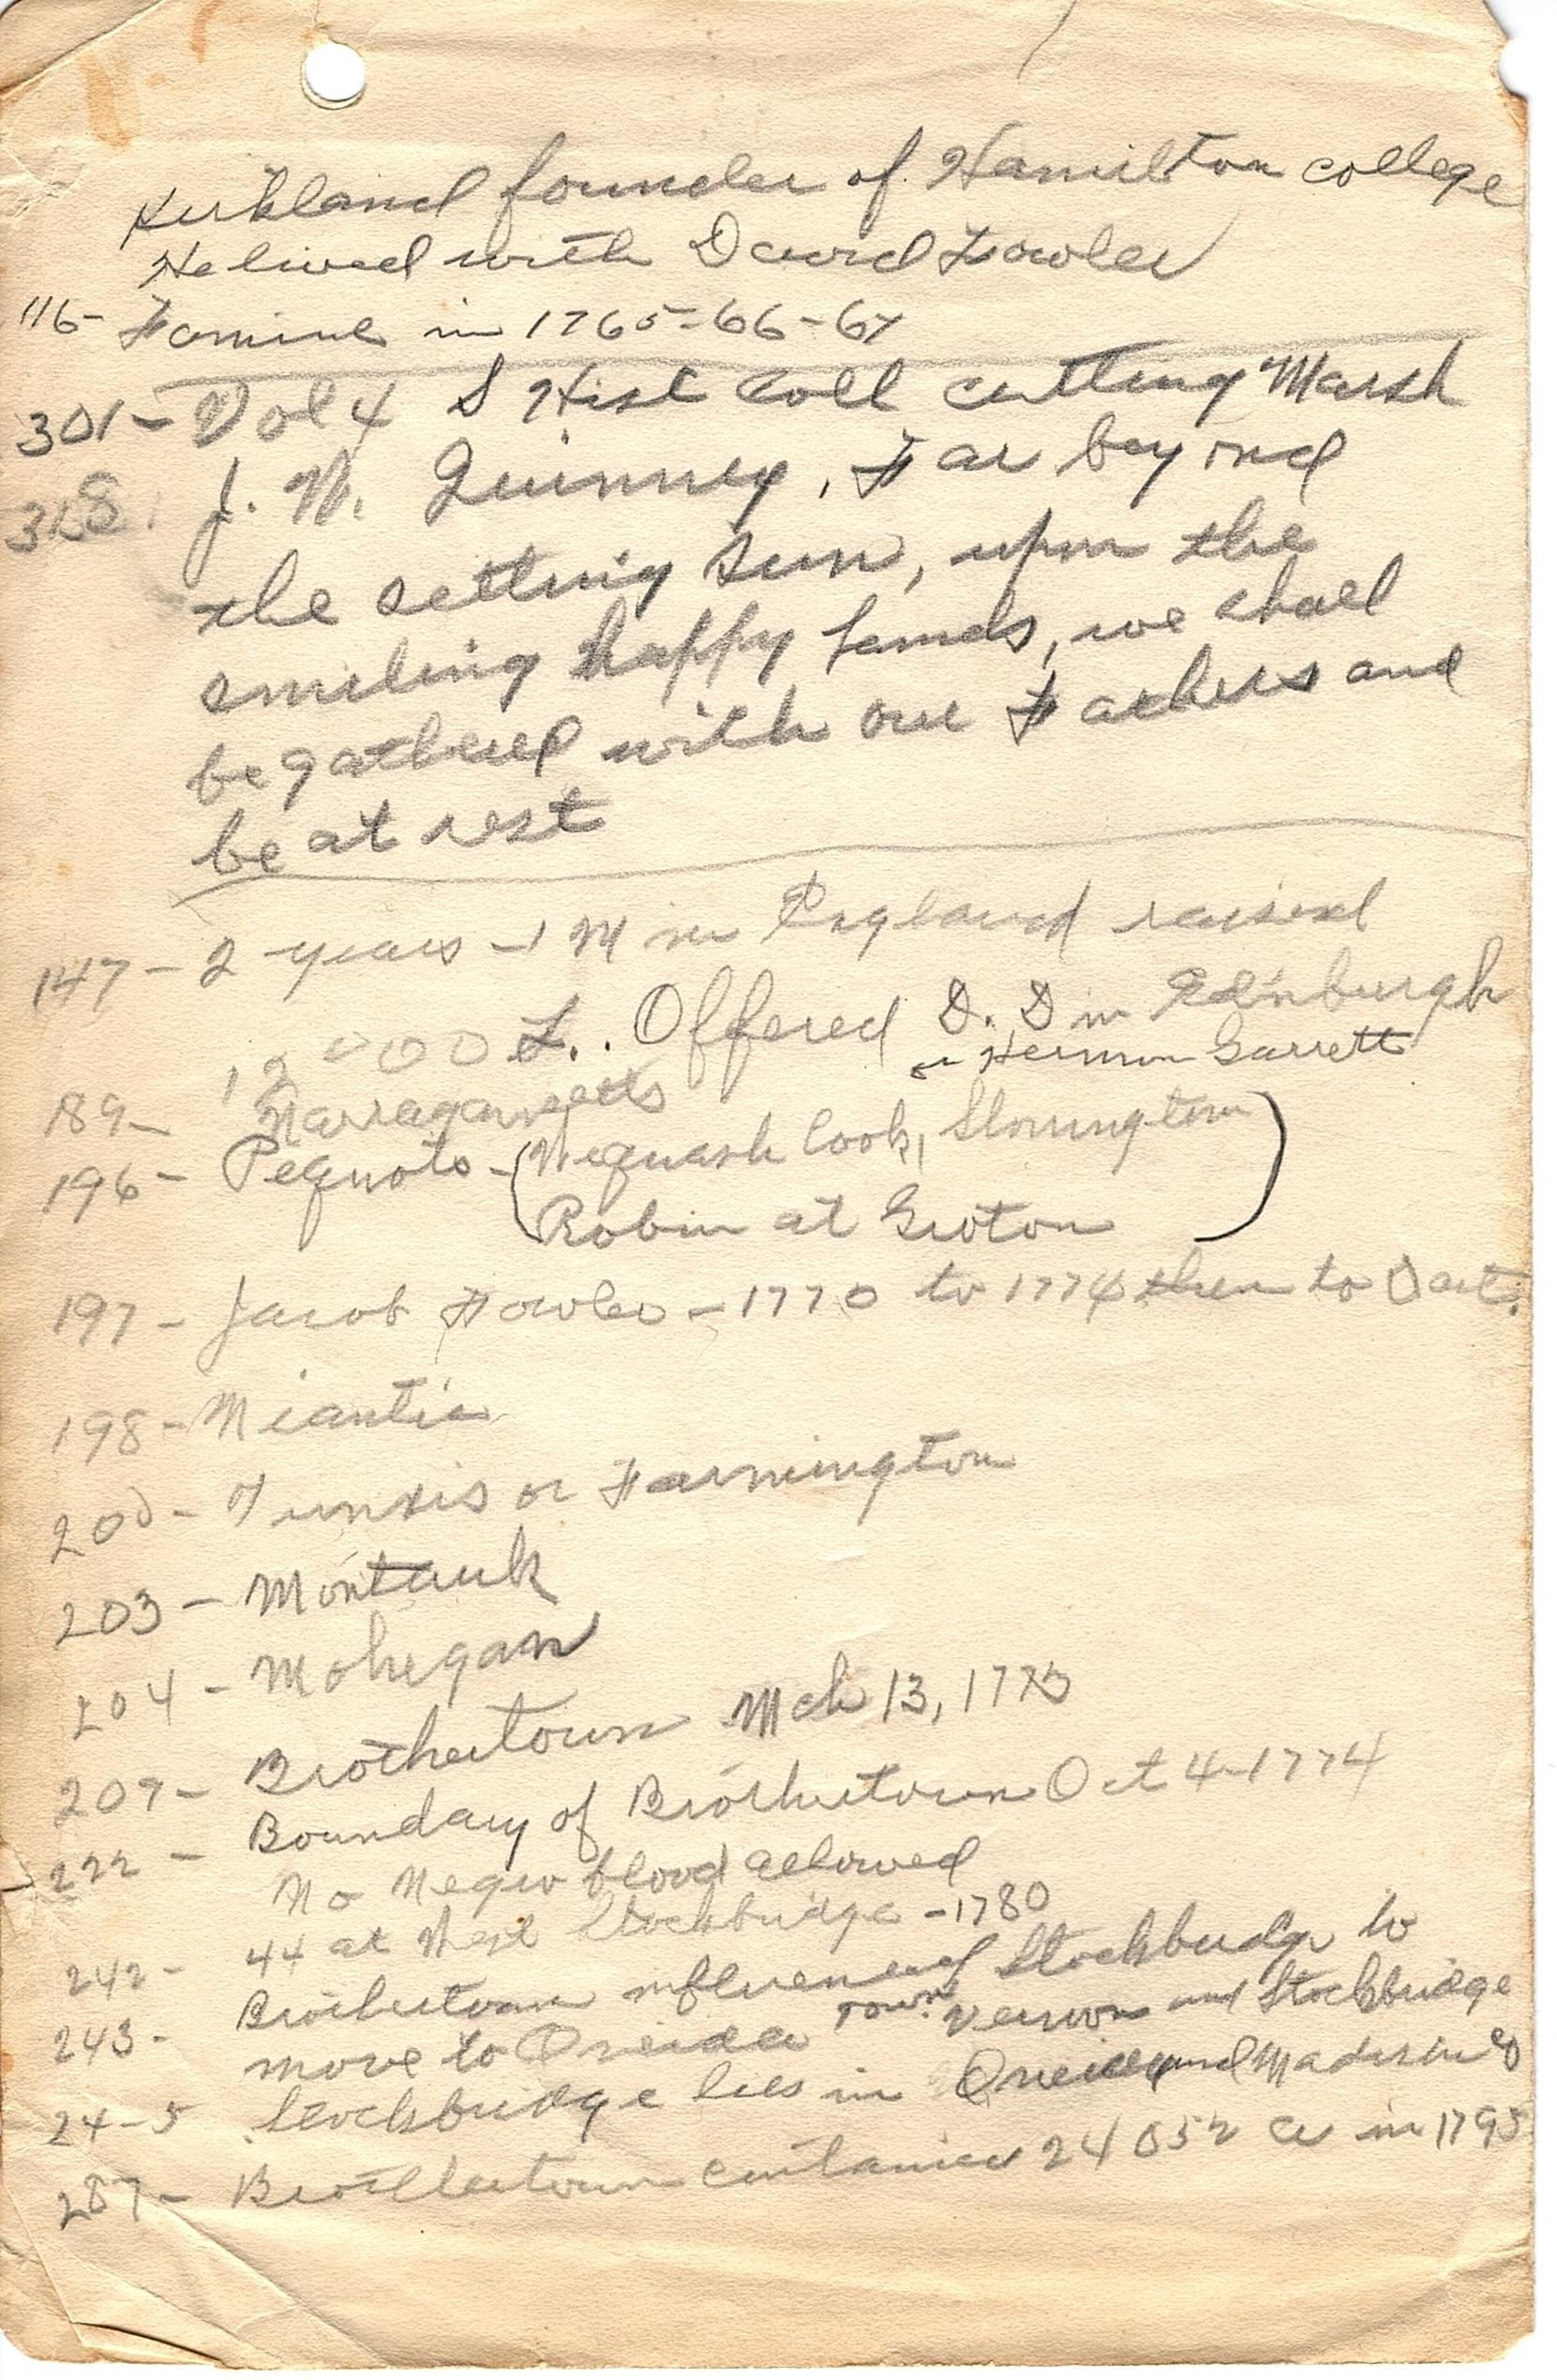 Kirkland founder of Hamilton college
He lived with David Fowler
116- Famine in 1765-66-67
301- Vol 4 S Hist Coll cutting Marsh
318. J. W. Quinney, Far beyond
the setting sun, upon the
smiling happy lands, we shall
be gathered with our Fathers and
be at rest
147- 2 years - 1 M in England raised
12000 L.. Offered D. D in Edinburgh
189- Narragansetts or Hermon Garrett
196- Pequots - (Wequash Cook, Stonington
Robin at Groton)
197- Jacob Fowler - 1770 to 1774 then to Dart.
198- Niantic
200- Tunxis or Farmington
203- Montauk
204- Mohegan
207- Brothertown Mch 13, 1773
222- Boundary of Brothertown Oct 4-1774
No Negro blood allowed
242- 44 at West Stockbridge -1780
243- Brothertown influenced Stockbridge to
move to Oneida Town. Vernon and Stockbridge
24-5 Stockbridge lies in Oneida and Madison Co
287- Brothertown contained 24052 a in 1795